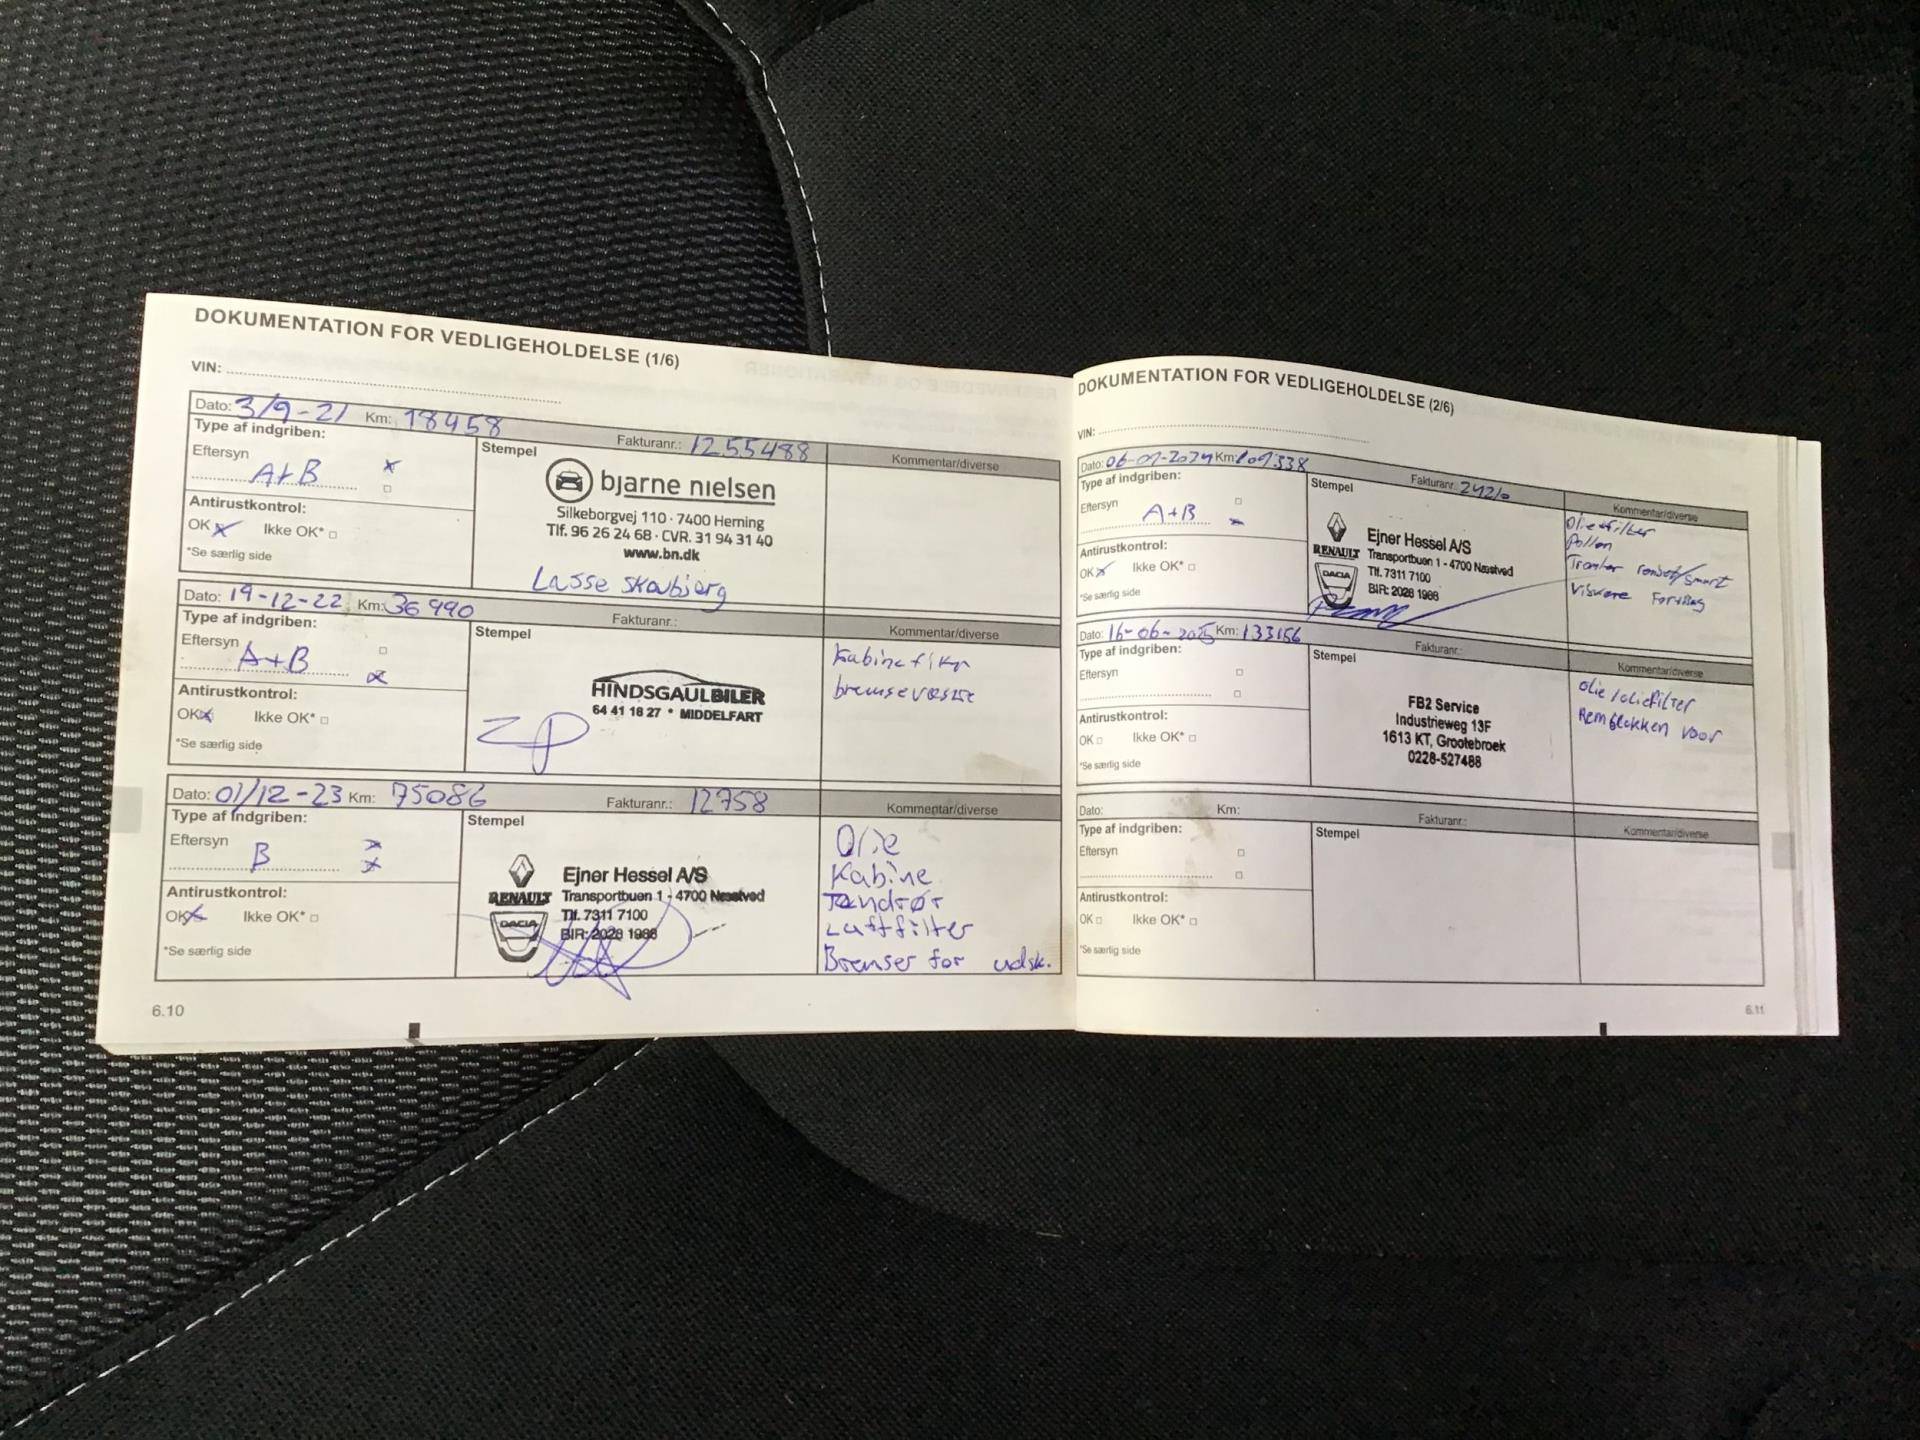 DOKUMENTATION FOR VEDLIGEHOLDELSE (1/6)
VIN:
Dato: 3/9-21 Km: 18458 Fakturanr.: 1255488
Type af indgriben:
Stempel
Kommentar/diverse
Eftersyn
A+B
bjarne nielsen
Silkeborgvej 110 · 7400 Herning
Tlf. 96 26 24 68 · CVR. 31 94 31 40
www.bn.dk
Antirustkontrol:
OK Ikke OK*
*Se særlig side
Dato: 19-12-22 Km: 36990 Fakturanr.:
Type af indgriben:
Stempel
Kommentar/diverse
Eftersyn
A+B
HINDSGAULBILER
64 41 18 27 * MIDDELFART
Antirustkontrol:
OK Ikke OK*
*Se særlig side
Dato: 01/12-23 Km: 75086 Fakturanr.: 12758
Type af indgriben:
Stempel
Kommentar/diverse
Eftersyn
B
Ejner Hessel A/S
RENAULT Transportbuen 1 - 4700 Næstved
Tlf. 7311 7100
DACIA BIR: 2028 1988
Olie
Kabine
Tændrør
Luftfilter
Bremser for udsk.
Antirustkontrol:
OK Ikke OK*
*Se særlig side
6.10
DOKUMENTATION FOR VEDLIGEHOLDELSE (2/6)
VIN:
Dato: Km: 109338 Fakturanr.:
Type af indgriben:
Stempel
Kommentar/diverse
Eftersyn
A+B
Ejner Hessel A/S
RENAULT Transportbuen 1 - 4700 Næstved
Tlf. 7311 7100
DACIA BIR: 2028 1988
Olie+filter
Pollen
Viskere
Antirustkontrol:
OK Ikke OK*
*Se særlig side
Dato: 16-06-2025 Km: 133156 Fakturanr.:
Type af indgriben:
Stempel
Kommentar/diverse
Eftersyn
FB2 Service
Industrieweg 13F
1613 KT, Grootebroek
0228-527488
olie/oliefilter
Remblokken voor
Antirustkontrol:
OK Ikke OK*
*Se særlig side
Dato: Km: Fakturanr.:
Type af indgriben:
Stempel
Kommentar/diverse
Eftersyn
Antirustkontrol:
OK Ikke OK*
*Se særlig side
6.11